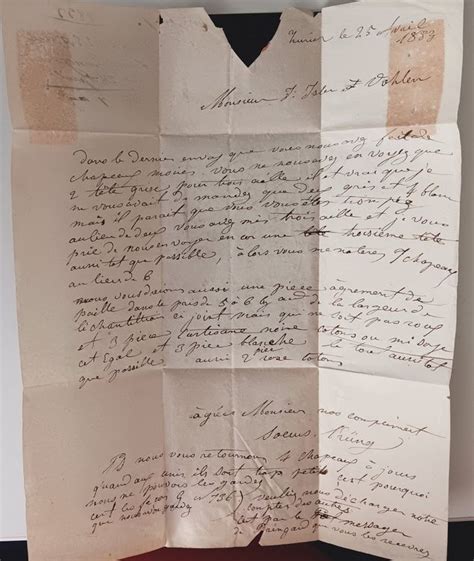 Zurich le 25 Avril 1833
Monsieur J. Isler et Wohlen
dans le dernier envoy que vous nous avez fait de
chapeaux vous ne nous avez envoyez que
2 tête gris pour trois aille il et vrai que je
ne vous avait demandez que deux gris et 4 blanc
mais il parait que vous vous êtes trompez
au lieu de deux vous avez mis trois aille et je vous
prie de nous envoyer en cor une troisième tête
aussitot que possible, alors vous ne noterez 9 chapeaux
au lieu de 6
nous voudrions aussi une piece agrement de
paille dans le prix de 5 à 6 de la largeur de
l'échantillon ci joint mais qui ne soit pas
et 3 piece noire ou mi soye
cet Egal et 3 piece blanche le tou aussitot
que possible aussi 2 piece rose
agréez Monsieur nos compliment
Soeurs Küng
NB nous vous retournons 4 chapeaux à jours
quand aux unis ils sont trop petits cet pourquoi
nous ne pouvons les garder
cet les façon 9 N 736 veuillez nous décharger notre
que nous compter des autres
cet par le messager
de que vous les recevrez